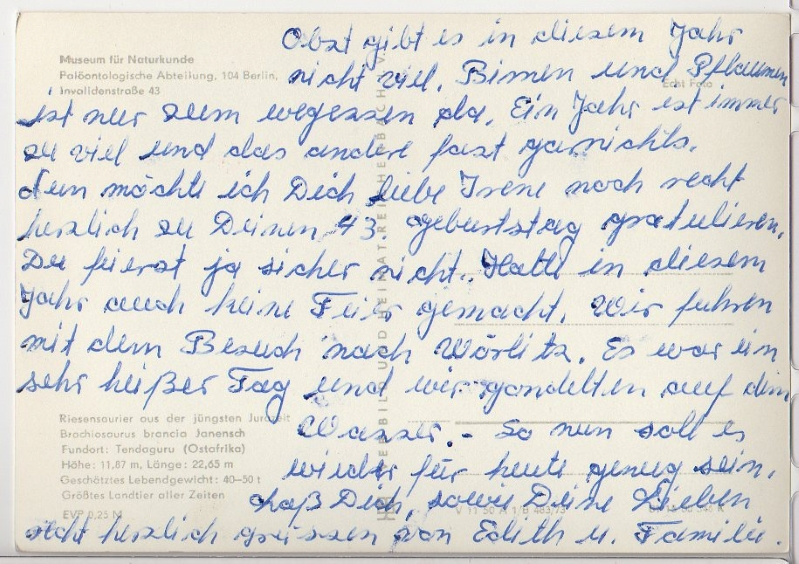 Museum für Naturkunde
Paläontologische Abteilung, 104 Berlin,
Invalidenstraße 43
Echt Foto
Obst gibt es in diesem Jahr
nicht viel. Birnen und Pflaumen
ist nur zum wegessen da. Ein Jahr ist immer
zu viel und das andere fast garnichts.
Nun möchte ich Dich liebe Irene noch recht
herzlich zu Deinen 43. Geburtstag gratulieren.
Du feierst ja sicher nicht. Hatte in diesem
Jahr auch keine Feier gemacht. Wir fuhren
mit dem Besuch nach Wörlitz. Es war ein
sehr heißer Tag und wir gondelten auf dem
Wasser. – So nun soll es
wieder für heute genug sein.
Laß Dich, sowie Deine Lieben
recht herzlich grüssen von Edith u. Familie.
Riesensaurier aus der jüngsten Jurazeit
Brachiosaurus brancia Janensch
Fundort: Tendaguru (Ostafrika)
Höhe: 11,87 m, Länge: 22,65 m
Geschätztes Lebendgewicht: 40–50 t
Größtes Landtier aller Zeiten
EVP 0,25 M
V 11 50 A 1/B 483/73